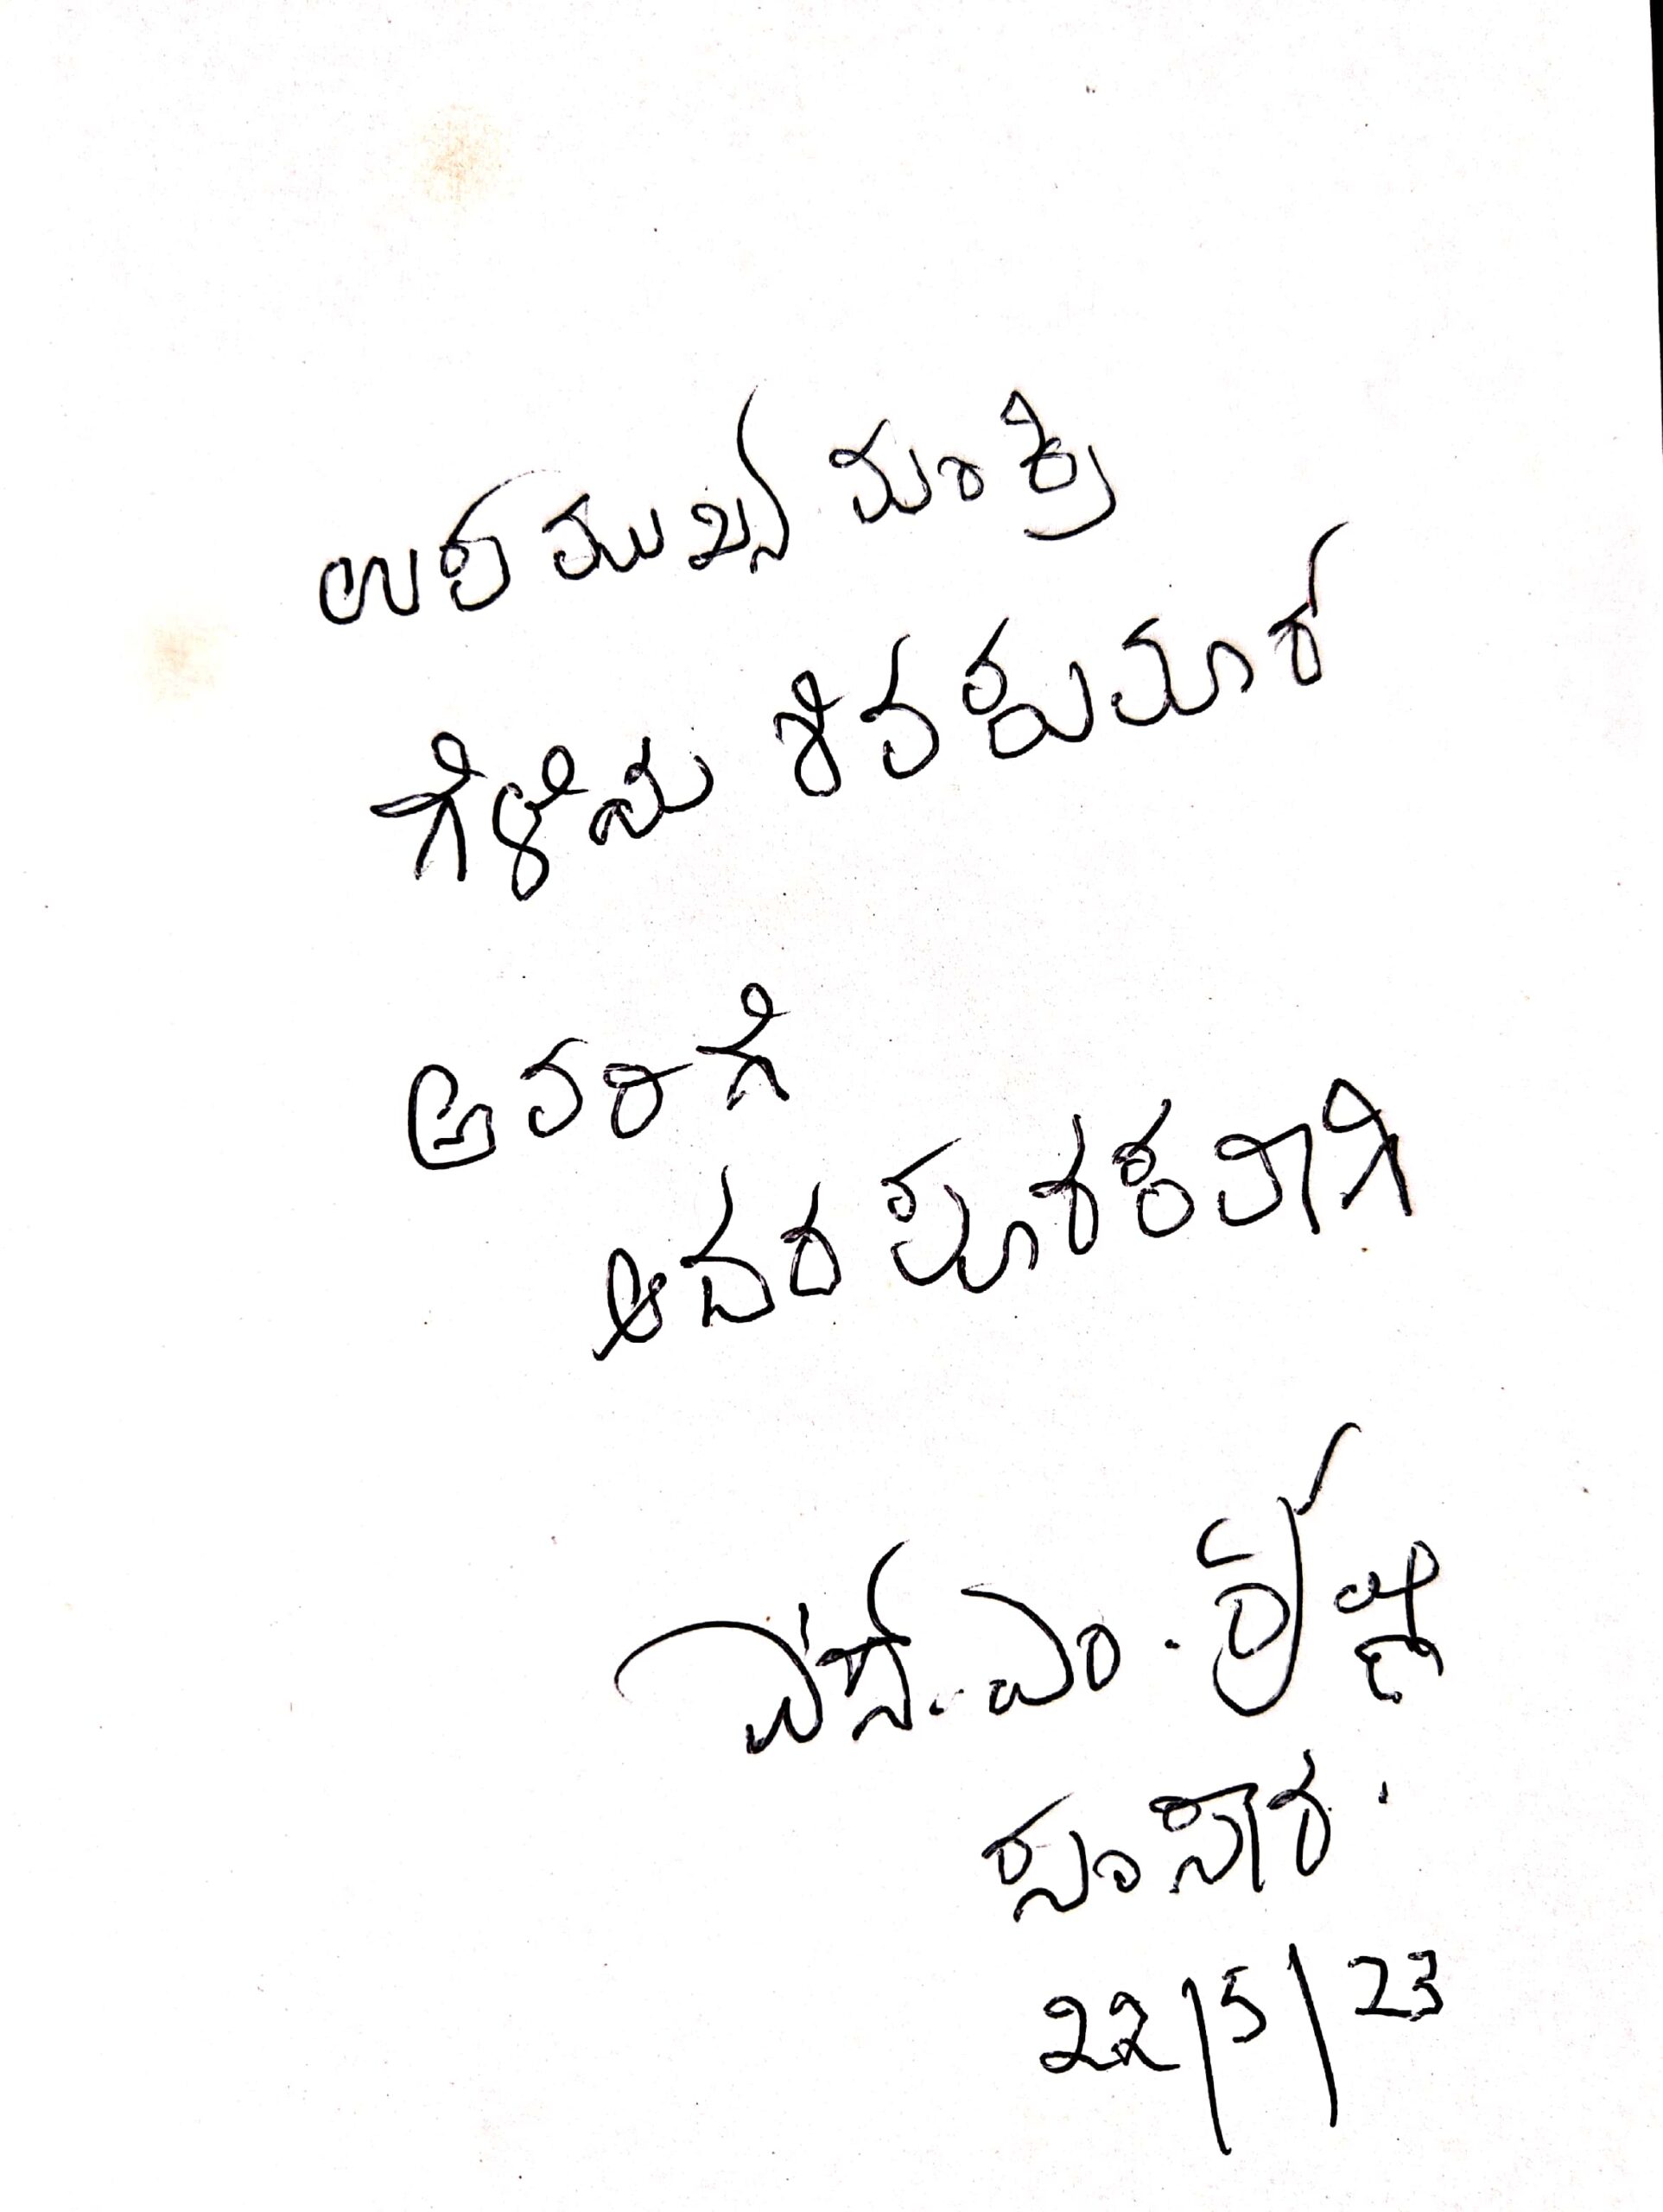 ಉಪಮುಖ್ಯಮಂತ್ರಿ
ಗೆಳೆಯ ಶಿವಕುಮಾರ
ಅವರಿಗೆ
ಆದರ ಪೂರಕವಾಗಿ
ಎಸ್.ಎಂ. ಕೃಷ್ಣ
22/5/23